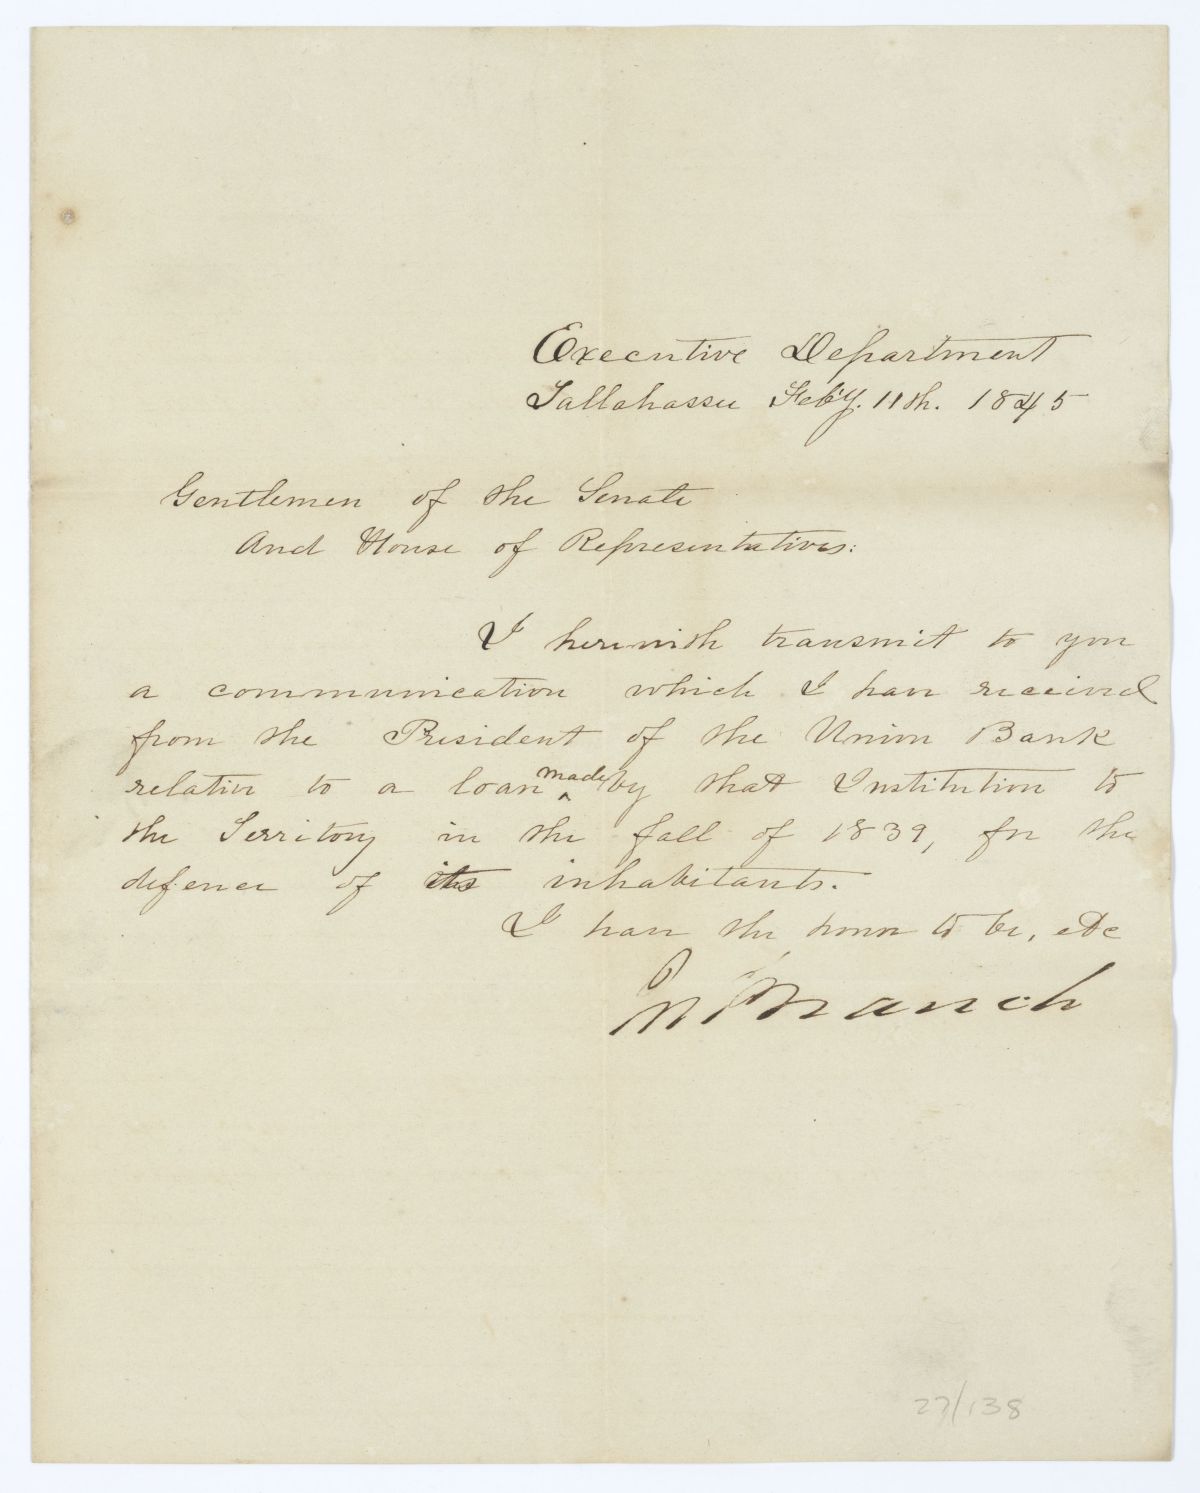 Executive Department
Tallahassee Feb'y. 11th. 1845
Gentlemen of the Senate
And House of Representatives:
I herewith transmit to you
a communication which I have received
from the President of the Union Bank
relative to a loan made by that Institution to
the Territory in the fall of 1839, for the
defence of its inhabitants.
I have the honor to be, etc
Branch
27/138